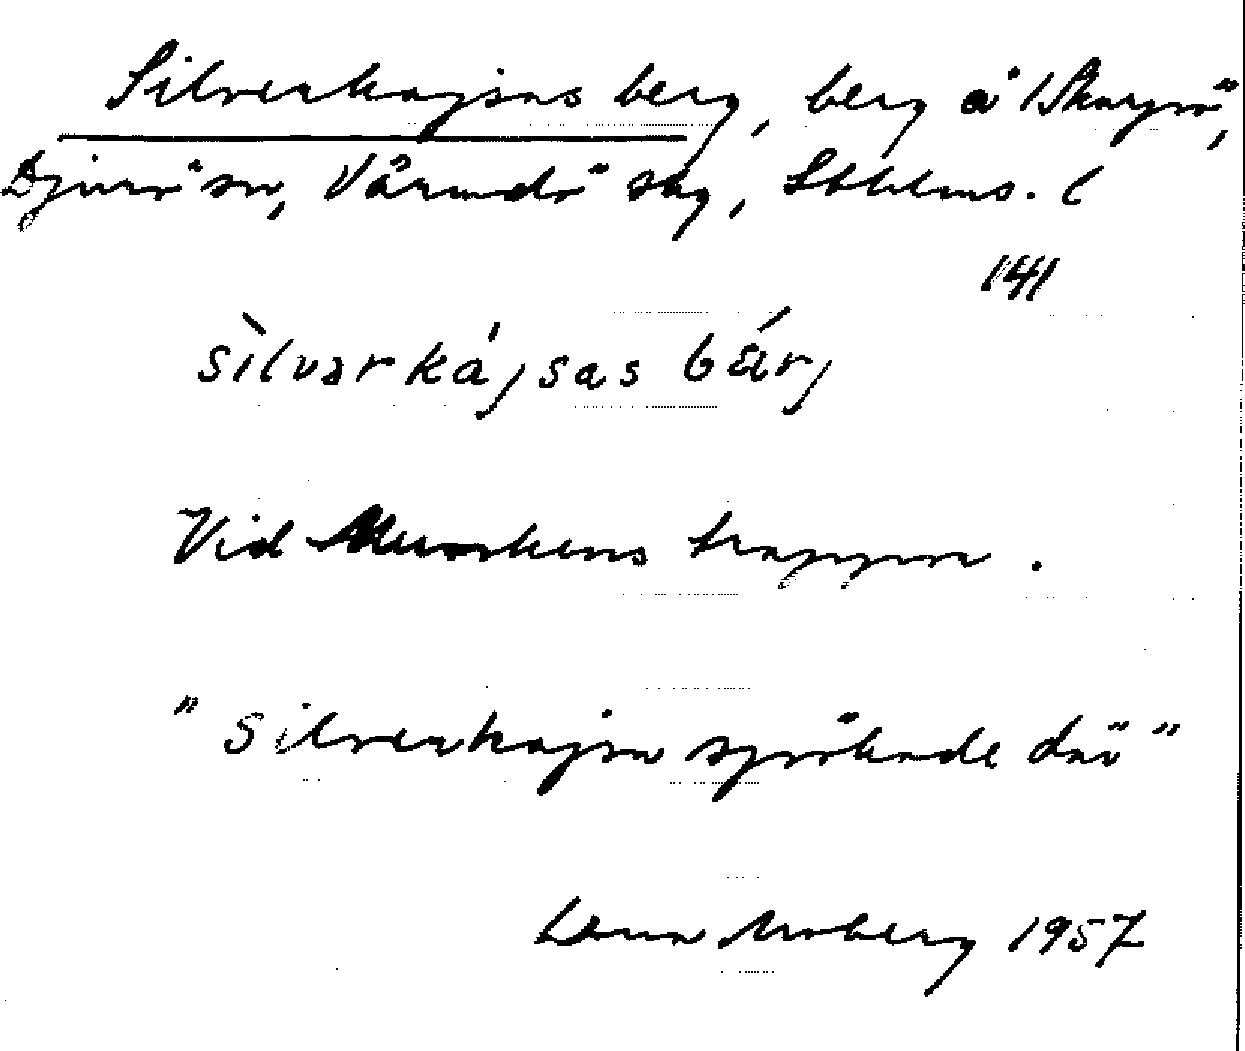 Silverkajsas berg, berg å Skarpö,
Djurö sn, Värmdö skg, Stkhlms. l
141
sìlvərkájsas bärj
Vid Munkens trappor.
"Silverkajsa spökade där"
Lena Moberg 1957